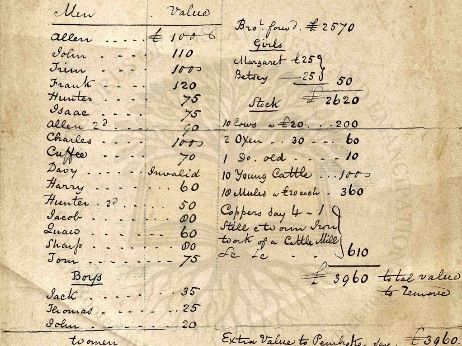 Men Value
Allen .... £ 100
John .... 110
Trim .... 100
Frank .... 120
Hunter .... 75
Isaac .... 75
Allen 2d .... 90
Charles .... 100
Cuffee .... 70
Davy .... Invalid
Harry .... 60
Hunter 2d .... 50
Jacob .... 80
Quaco .... 60
Sharp .... 80
Tom .... 75
Boys
Jack .... 35
Thomas .... 25
John .... 20
women
Brot. forwd. £2570
Girls
Margaret £25
Betsey .. 25 50
£ 2620
Stock
10 Cows a £20 ... 200
2 Oxen . 30 .. 60
1 Do. old .... 10
10 Young Cattle .. 100
10 Mules a each . 360
Coppers say 4 - 1
Still & worm Iron
work of a Cattle Mill
&c &c 610
£ 3960 total value
to remove
Extra Value to say £3960.